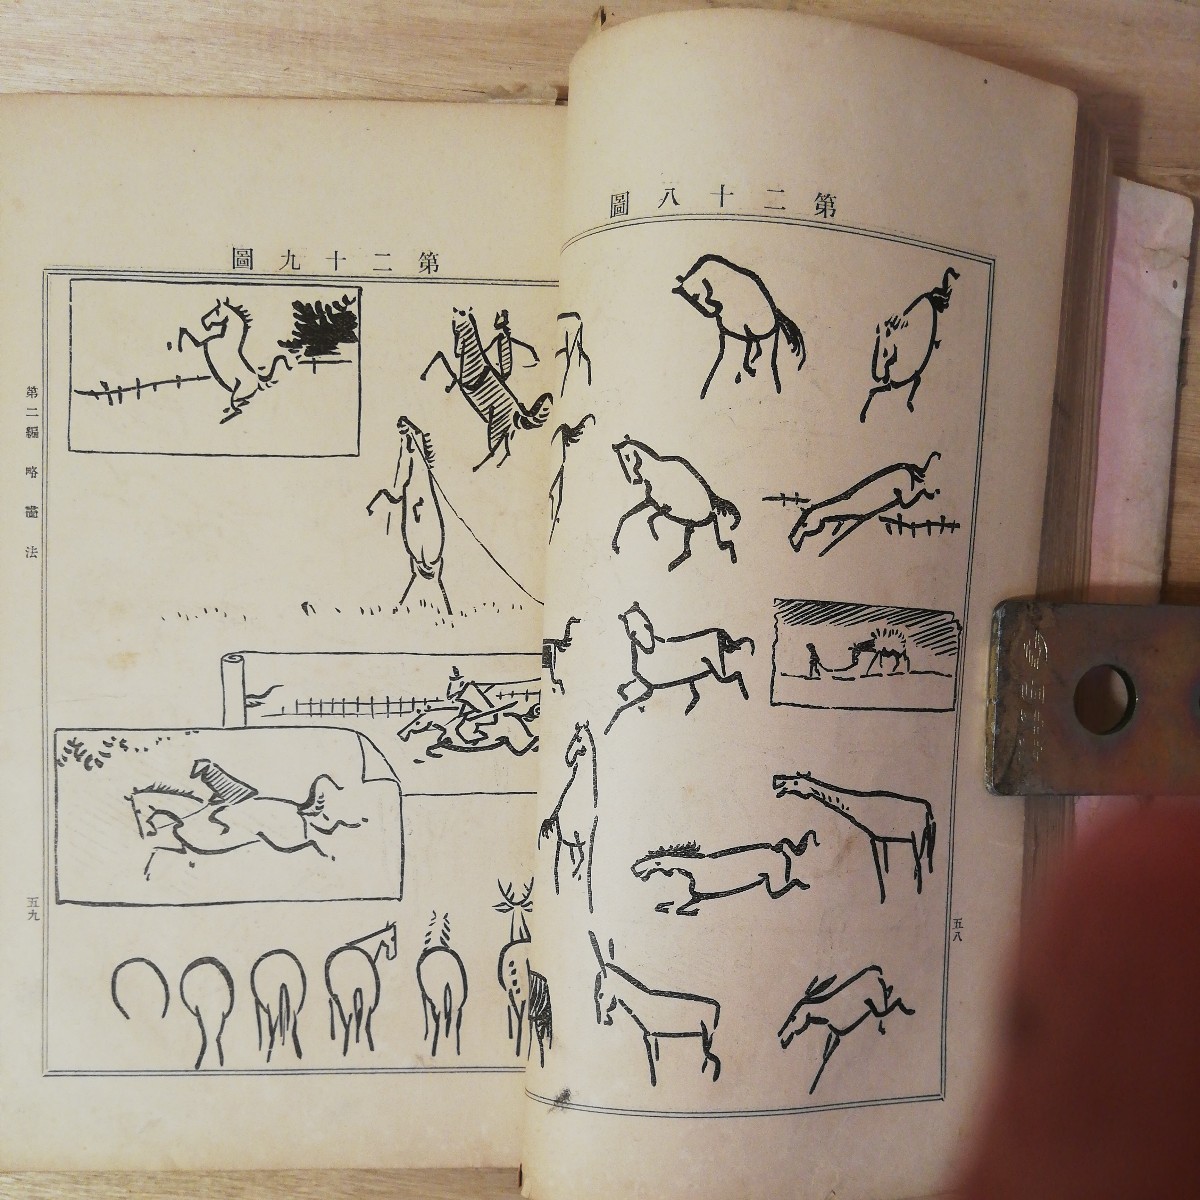 第二十八圖
五八
第二十九圖
第二編 略畫法
五九